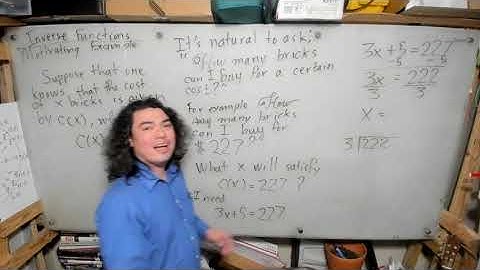 Inverse Functions
Motivating Example
Suppose that one
knows that the cost
of x bricks is given
by C(x), wi
C(x)
It's natural to ask:
"How many bricks
can I buy for a certain
cost?"
For example How
many many bricks
can I buy for
$227?
What x will satisfy
C(x) = 227?
I need
3x+5=227
3x+5=227
-5 -5
3x = 222
3 3
x =
3 222